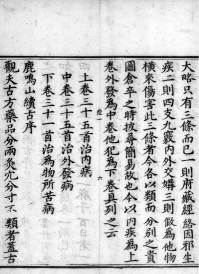 大略只有三條而已一則府藏經絡因邪生
疾二則四支九竅內外交媾三則假為他物
橫來傷害此三條者今各以類而分別之貴
圖倉卒之時披尋簡易故也今以內疾為上
卷外發為中卷他犯為下卷具列之云
上卷三十五首治內病
中卷三十五首治外發病
下卷三十一首治為物所苦病
鹿鳴山續古序
觀夫古方藥品分兩灸穴分寸不類者蓋古